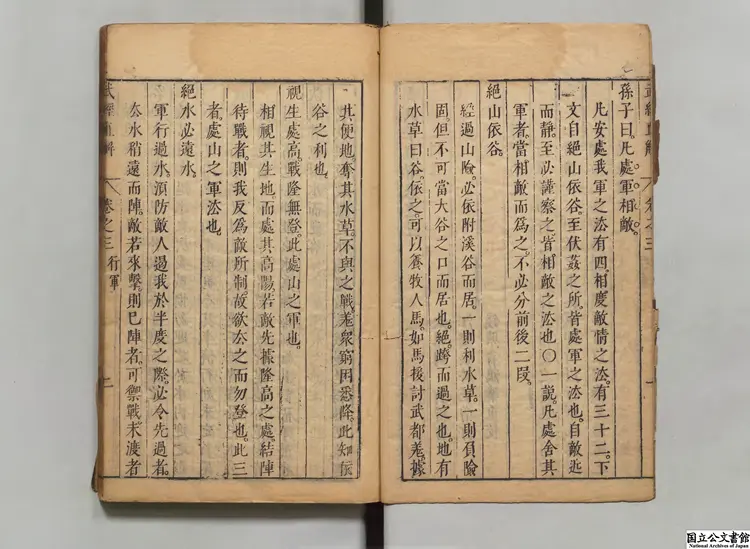 孫子曰。凡處軍相敵。
凡安處我軍之法有四。相度敵情之法。有三十二。下
文自絕山依谷。至伏姦之所。皆處軍之法也。自敵近
而靜。至必謹察之。皆相敵之法也〇一說。凡處舍其
軍者。當相敵而爲之。不必分前後二段。
絕山依谷。
經過山險。必依附溪谷而居。一則利水草。一則負險
固。但不可當大谷之口而居也。絕。踰而過之也。地有
水草曰谷。依之。可以養牧人馬。如馬援討武都羗。據
其便地。奪其水草。不與之戰。羗衆窮困悉降。此知依
谷之利也。
視生處高。戰隆無登。此處山之軍也。
相視其生地。而處其高陽。若敵先據隆高之處。結陣
待戰者。則我反爲敵所制。故欲去之而勿登也。此三
者。處山之軍法也。
絕水必遠水。
軍行過水。預防敵人遏我於半度之際。必令先過者。
去水稍遠而陣。敵若來擊。則已陣者。可禦戰。未渡者
武經直解 卷之三 行軍
国立公文書館
National Archives of Japan